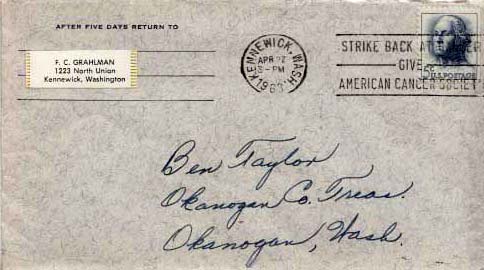 AFTER FIVE DAYS RETURN TO
F. C. GRAHLMAN
1223 North Union
Kennewick, Washington
KENNEWICK, WASH.
APR 22
3 - PM
1963
STRIKE BACK AT
GIVE
AMERICAN CANCER SOCIETY
5c
U.S. POSTAGE
Ben Taylor
Okanogan Co. Treas.
Okanogan, Wash.